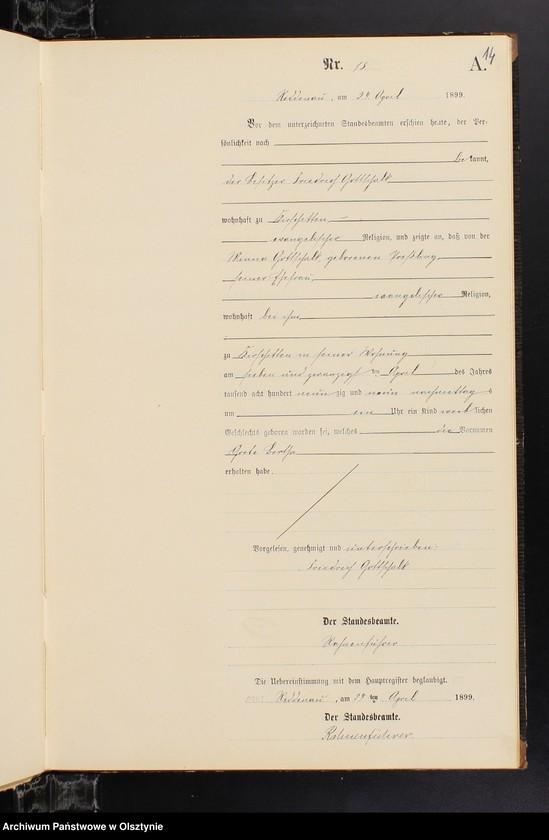 14
Nr. 18 A.
Reddenau, am 29. April 1899.
Vor dem unterzeichneten Standesbeamten erschien heute, der Per-
sönlichkeit nach
bekannt,
der Besitzer Friedrich Gottschalk
wohnhaft zu
evangelischer Religion, und zeigte an, daß von der
Minna Gottschalk, geborenen
seiner Ehefrau,
evangelischer Religion,
wohnhaft bei ihm
zu in seiner Wohnung
am sieben und zwanzigsten April des Jahres
tausend acht hundert neunzig und neun nachmittags
um ein Uhr ein Kind weiblichen
Geschlechts geboren worden sei, welches die Vornamen
Grete Bertha
erhalten habe.
Vorgelesen, genehmigt und unterschrieben:
Friedrich Gottschalk
Der Standesbeamte.
Rahnenführer
Die Uebereinstimmung mit dem Hauptregister beglaubigt.
Reddenau, am 29 ten April 1899.
Der Standesbeamte.
Rahnenführer
Archiwum Państwowe w Olsztynie